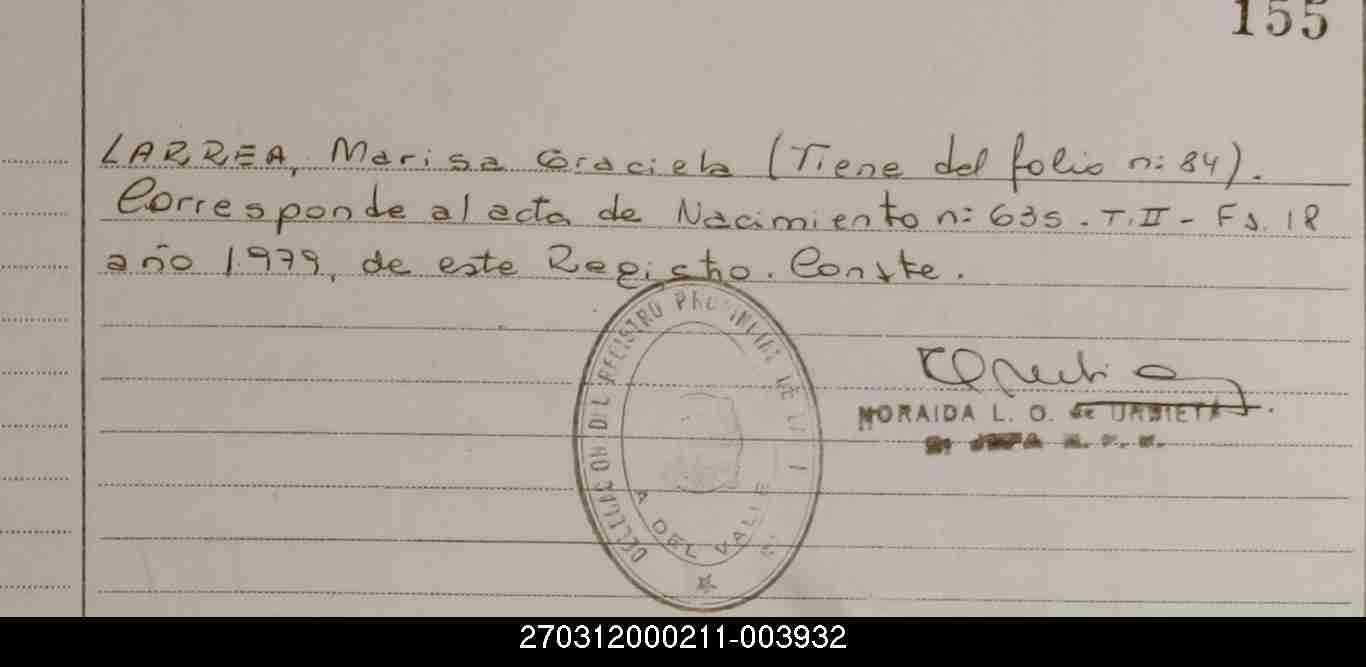 155
LARREA, Marisa Graciela (Tiene del folio n: 84).
Corresponde al acta de Nacimiento n: 635 - T.II - Fs. 18
año 1.979, de este Registro. Conste.
DELEGACION DEL REGISTRO PROVINCIAL DE LA
DEL VALLE
NORAIDA L. O. de URBIETA
270312000211-003932